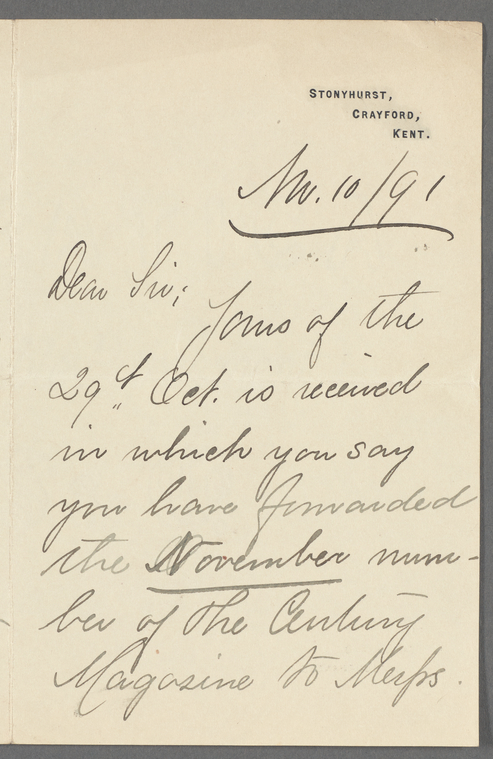 STONYHURST,
CRAYFORD,
KENT.
Nov. 10/91
Dear Sir;
Yours of the
29th Oct. is received
in which you say
you have forwarded
the November num-
ber of The Century
Magazine to Messrs.